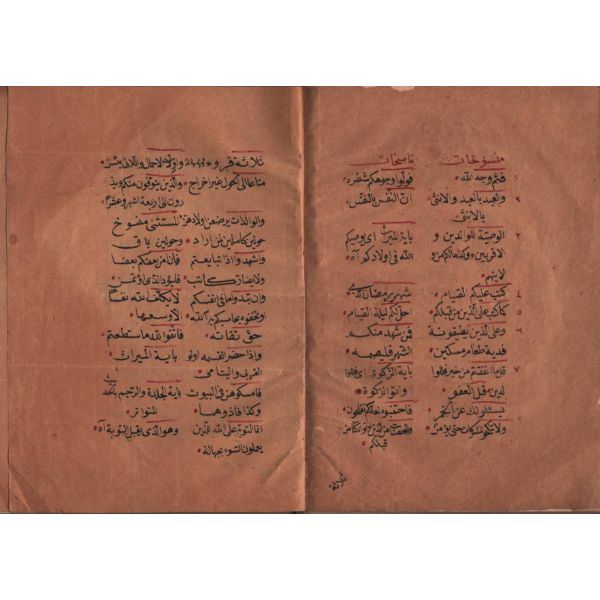 منسوخات ناسخات
فثم وجه الله فولوا وجوهكم شطره
والعبد بالعبد والانثى ان النفس بالنفس
بالانثى
الوصية للوالدين و باية الميراث اى يوصيكم
الاقربين الله فى اولادكم آه
كتب عليكم الصيام شهر رمضان
كما كتب على الذين من قبلكم احل لكم ليلة الصيام
وعلى الذين يطيقونه فمن شهد منكم
فدية طعام مسكين الشهر فليصمه
قل ما انفقتم من خير فللوا باية الزكوة
لدين قل العفو واتو الزكوة
يسئلونك عن الخمر فاجتنبوه لعلكم تفلحون
ولا تنكحوا المشركات حتى يؤمن من الذين اوتوا الكتاب من
قبلكم
ثلاثة قروء واولات الاحمال واللائى يئسن
متاعا الى الحول غير اخراج والذين يتوفون منكم ويذ
رون الى اربعة اشهر وعشرا
والوالدات يرضعن اولادهن المستثنى منسوخ
حولين كاملين لمن اراد وحولين باق
واشهدوا اذا تبايعتم فان امن بعضكم بعضا
ولا يضار كاتب فليؤد الذى اؤتمن
وان تبدوا ما فى انفسكم لا يكلف الله نفسا
او تخفوه يحاسبكم به الله الا وسعها
حق تقاته فاتقوا الله ما استطعتم
واذا حضر القسمه اولو باية الميراث
القربى واليتامى
فامسكوهن فى البيوت باية الجلدة والرجم
وكذا فاذوهما المتواتر
انما التوبة على الله للذين وهو الذى يقبل التوبة آه
يعملون السوء بجهالة